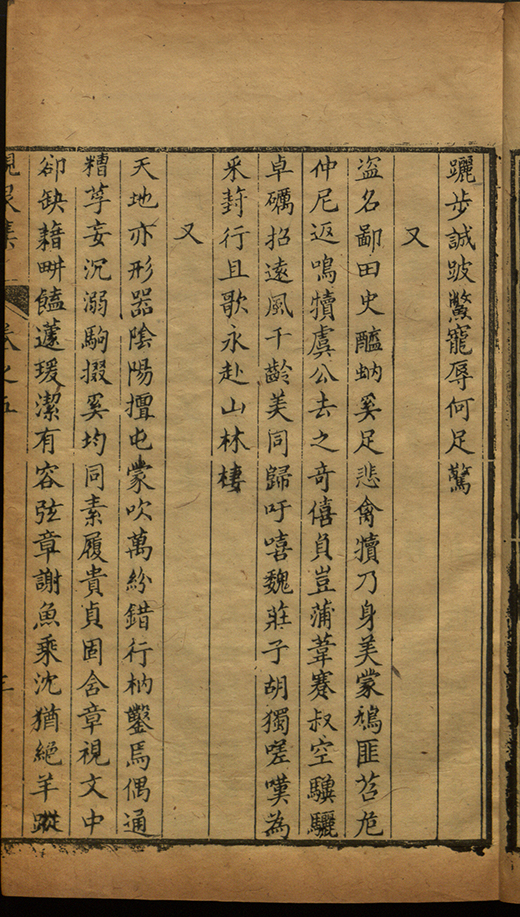 躧步誠跛鱉寵辱何足驚
又
盗名鄙田史醯蚋奚足悲禽犢乃身美蒙鳩匪苕危
仲尼返鳴犢虞公去之奇僖負豈蒲葦蹇叔空驥驪
卓礪招遠風千齡美同歸吁嘻魏莊子胡獨嗟嘆為
采葑行且歌永赴山林棲
又
天地亦形器陰陽擅屯蒙吹萬紛錯行枘鑿焉偶通
糟莩妄沉溺駒掇奚均同素履貴貞固含章視文中
郤缺藉畊饁蘧瑗潔有容弦章謝魚乘沈猶絕羊蹤
集 卷之五